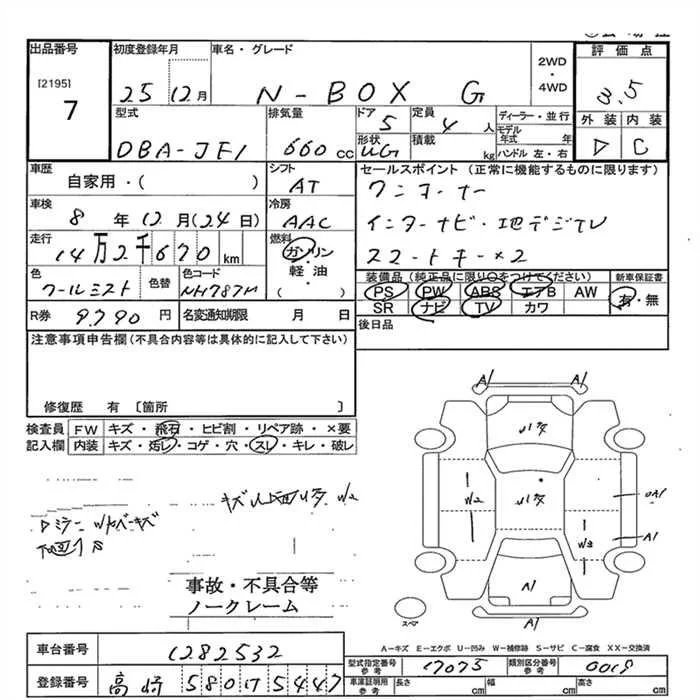 出品番号 初度登録年月 車名・グレード 2WD・4WD 評価点
[2195]
7 25 12月 N-BOX G 3.5
型式 排気量 ドア 定員 ディーラー・並行 外装 内装
DBA-JF1 660 cc 5 4人 モデル年式 年 C
形状 積載 kg ハンドル 左・右
車歴 シフト セールスポイント(正常に機能するものに限ります)
自家用・( ) AT ワンオーナー
車検 冷房
8年12月(24日) AAC インターナビ・地デジTV
走行 燃料
14万2千670 km ガソリン スマートキー×2
軽油
・( )
色 色替 色コード 装備品(純正品に限り○をつけてください) 新車保証書
クールミスト NH787M PS PW ABS エアB AW 有・無
SR ナビ TV カワ
R券 9,790円 名変通知期限 月 日 後日品
注意事項申告欄(不具合内容等は具体的に記入して下さい)
修復歴 有 〔箇所 〕
検査員 FW キズ・飛石・ヒビ割・リペア跡・×要
記入欄 内装 キズ・汚レ・コゲ・穴・スレ・キレ・破レ
A1 A1
W2
A1
W3
A1
スペア
事故・不具合等
ノークレーム
A-キズ E-エクボ U-凹み W-補修跡 S-サビ C-腐食 XX-交換済
車台番号 1282532
型式指定番号 参考 17075 類別区分番号 参考 0019
登録番号 高崎 580 け 5447
車庫証明用 参考 長さ cm 幅 cm 高さ cm